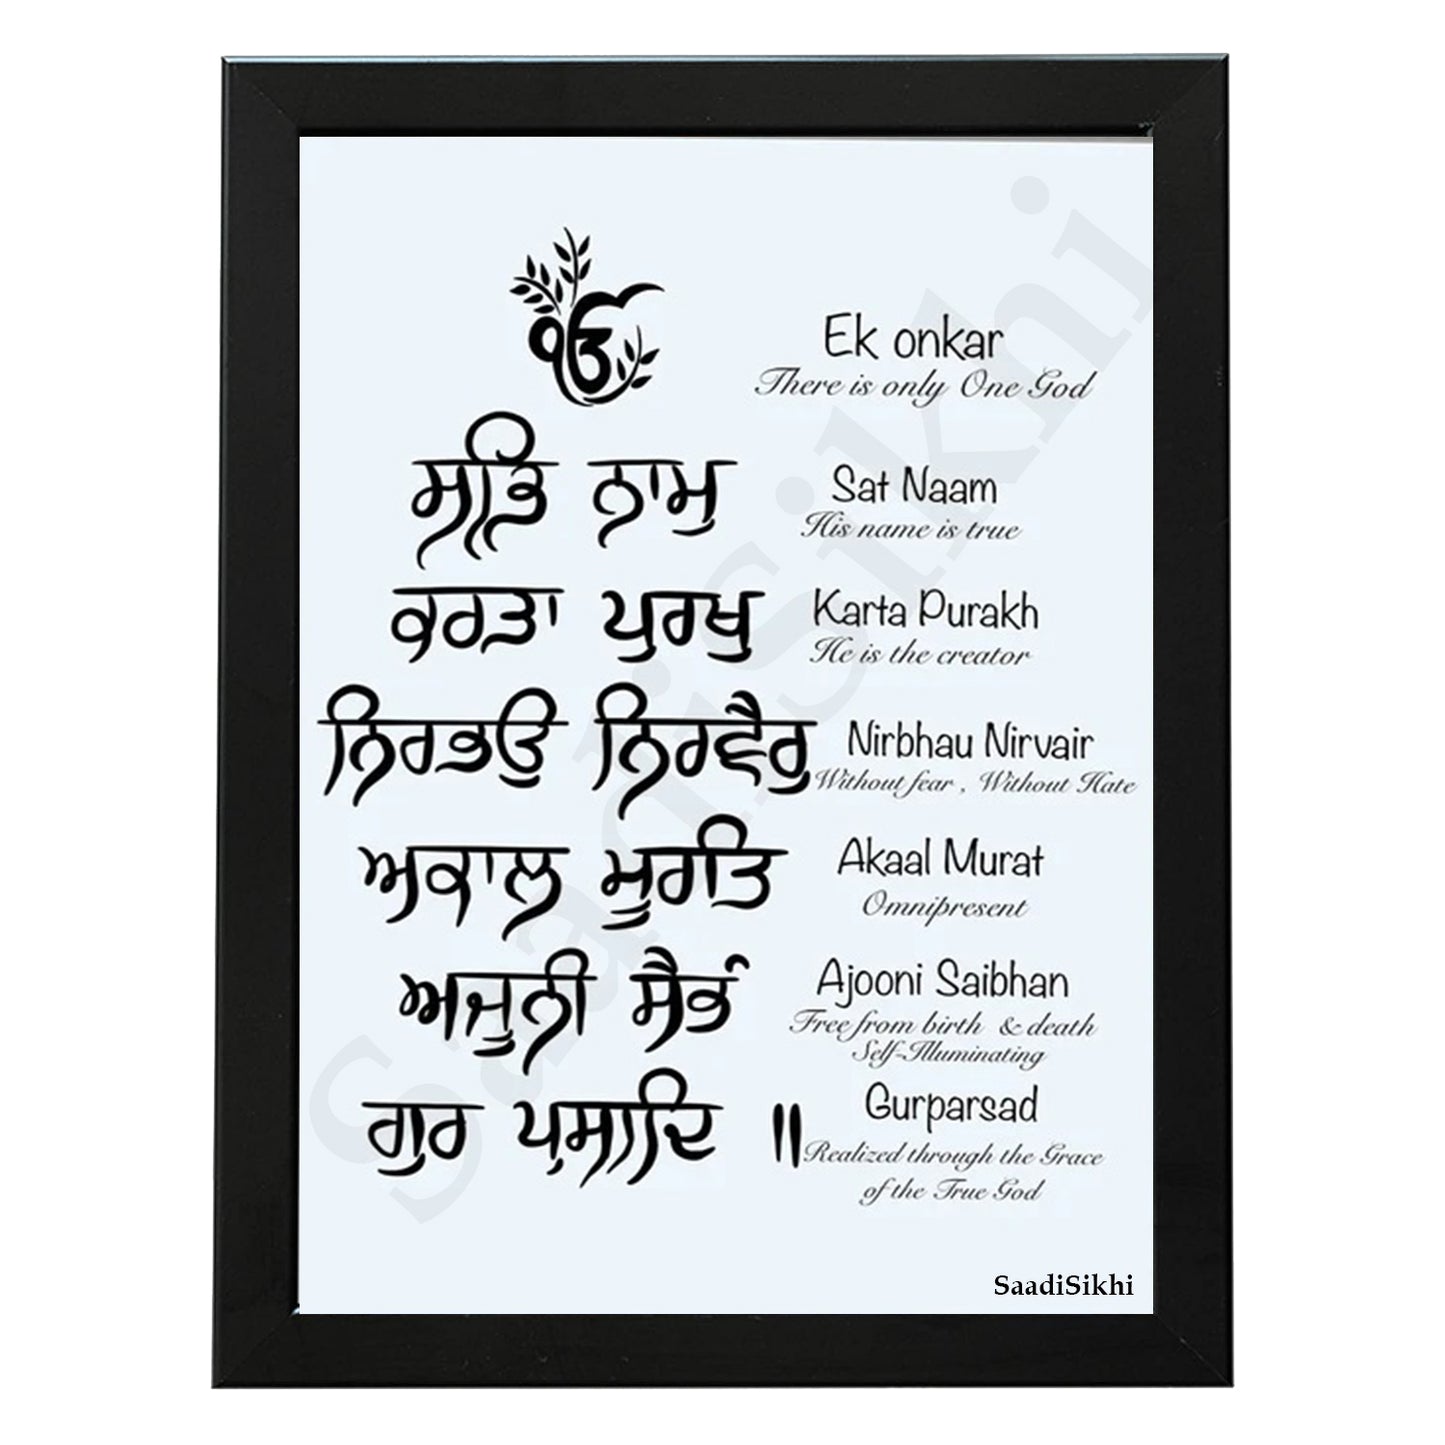 ੴ
Ek onkar
There is only One God
ਸਤਿ ਨਾਮੁ
Sat Naam
His name is true
ਕਰਤਾ ਪੁਰਖੁ
Karta Purakh
He is the creator
ਨਿਰਭਉ ਨਿਰਵੈਰੁ
Nirbhau Nirvair
Without fear , Without Hate
ਅਕਾਲ ਮੂਰਤਿ
Akaal Murat
Omnipresent
ਅਜੂਨੀ ਸੈਭੰ
Ajooni Saibhan
Free from birth & death
Self-Illuminating
ਗੁਰ ਪ੍ਰਸਾਦਿ ॥
Gurparsad
Realized through the Grace
of the True God
SaadiSikhi
SaadiSikhi